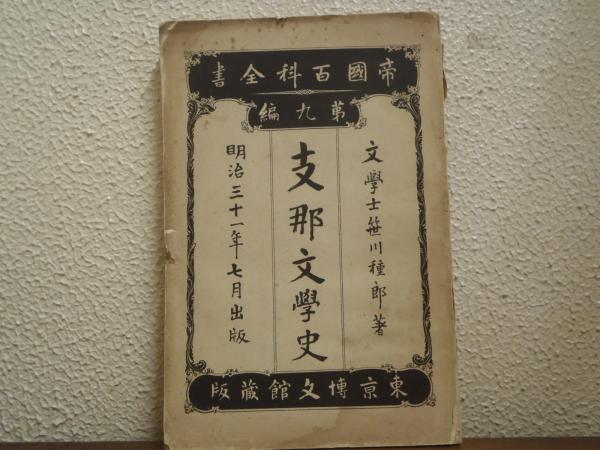 帝國百科全書
第九編
文學士笹川種郎著
支那文學史
明治三十一年七月出版
東京博文館蔵版